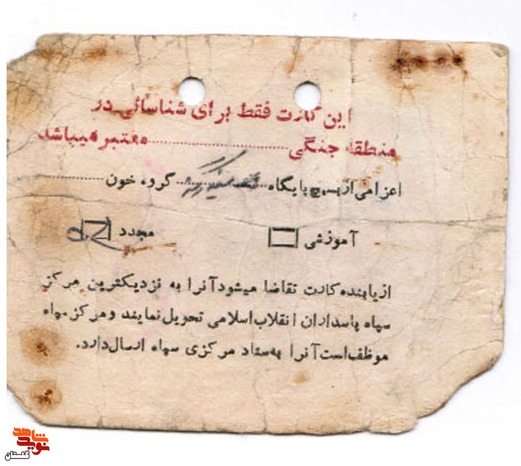 این کارت فقط برای شناسائی در
منطقه جنگی ........................ معتبر میباشد
اعزامی از بسیج پایگاه ............ گروه خون ............
آموزشی مجدد
از یابنده کارت تقاضا میشود آنرا به نزدیکترین مرکز
سپاه پاسداران انقلاب اسلامی تحویل نمایند و مرکز سپاه
موظف است آنرا به ستاد مرکزی سپاه ارسال دارد.
نوید شاهد
گلستان